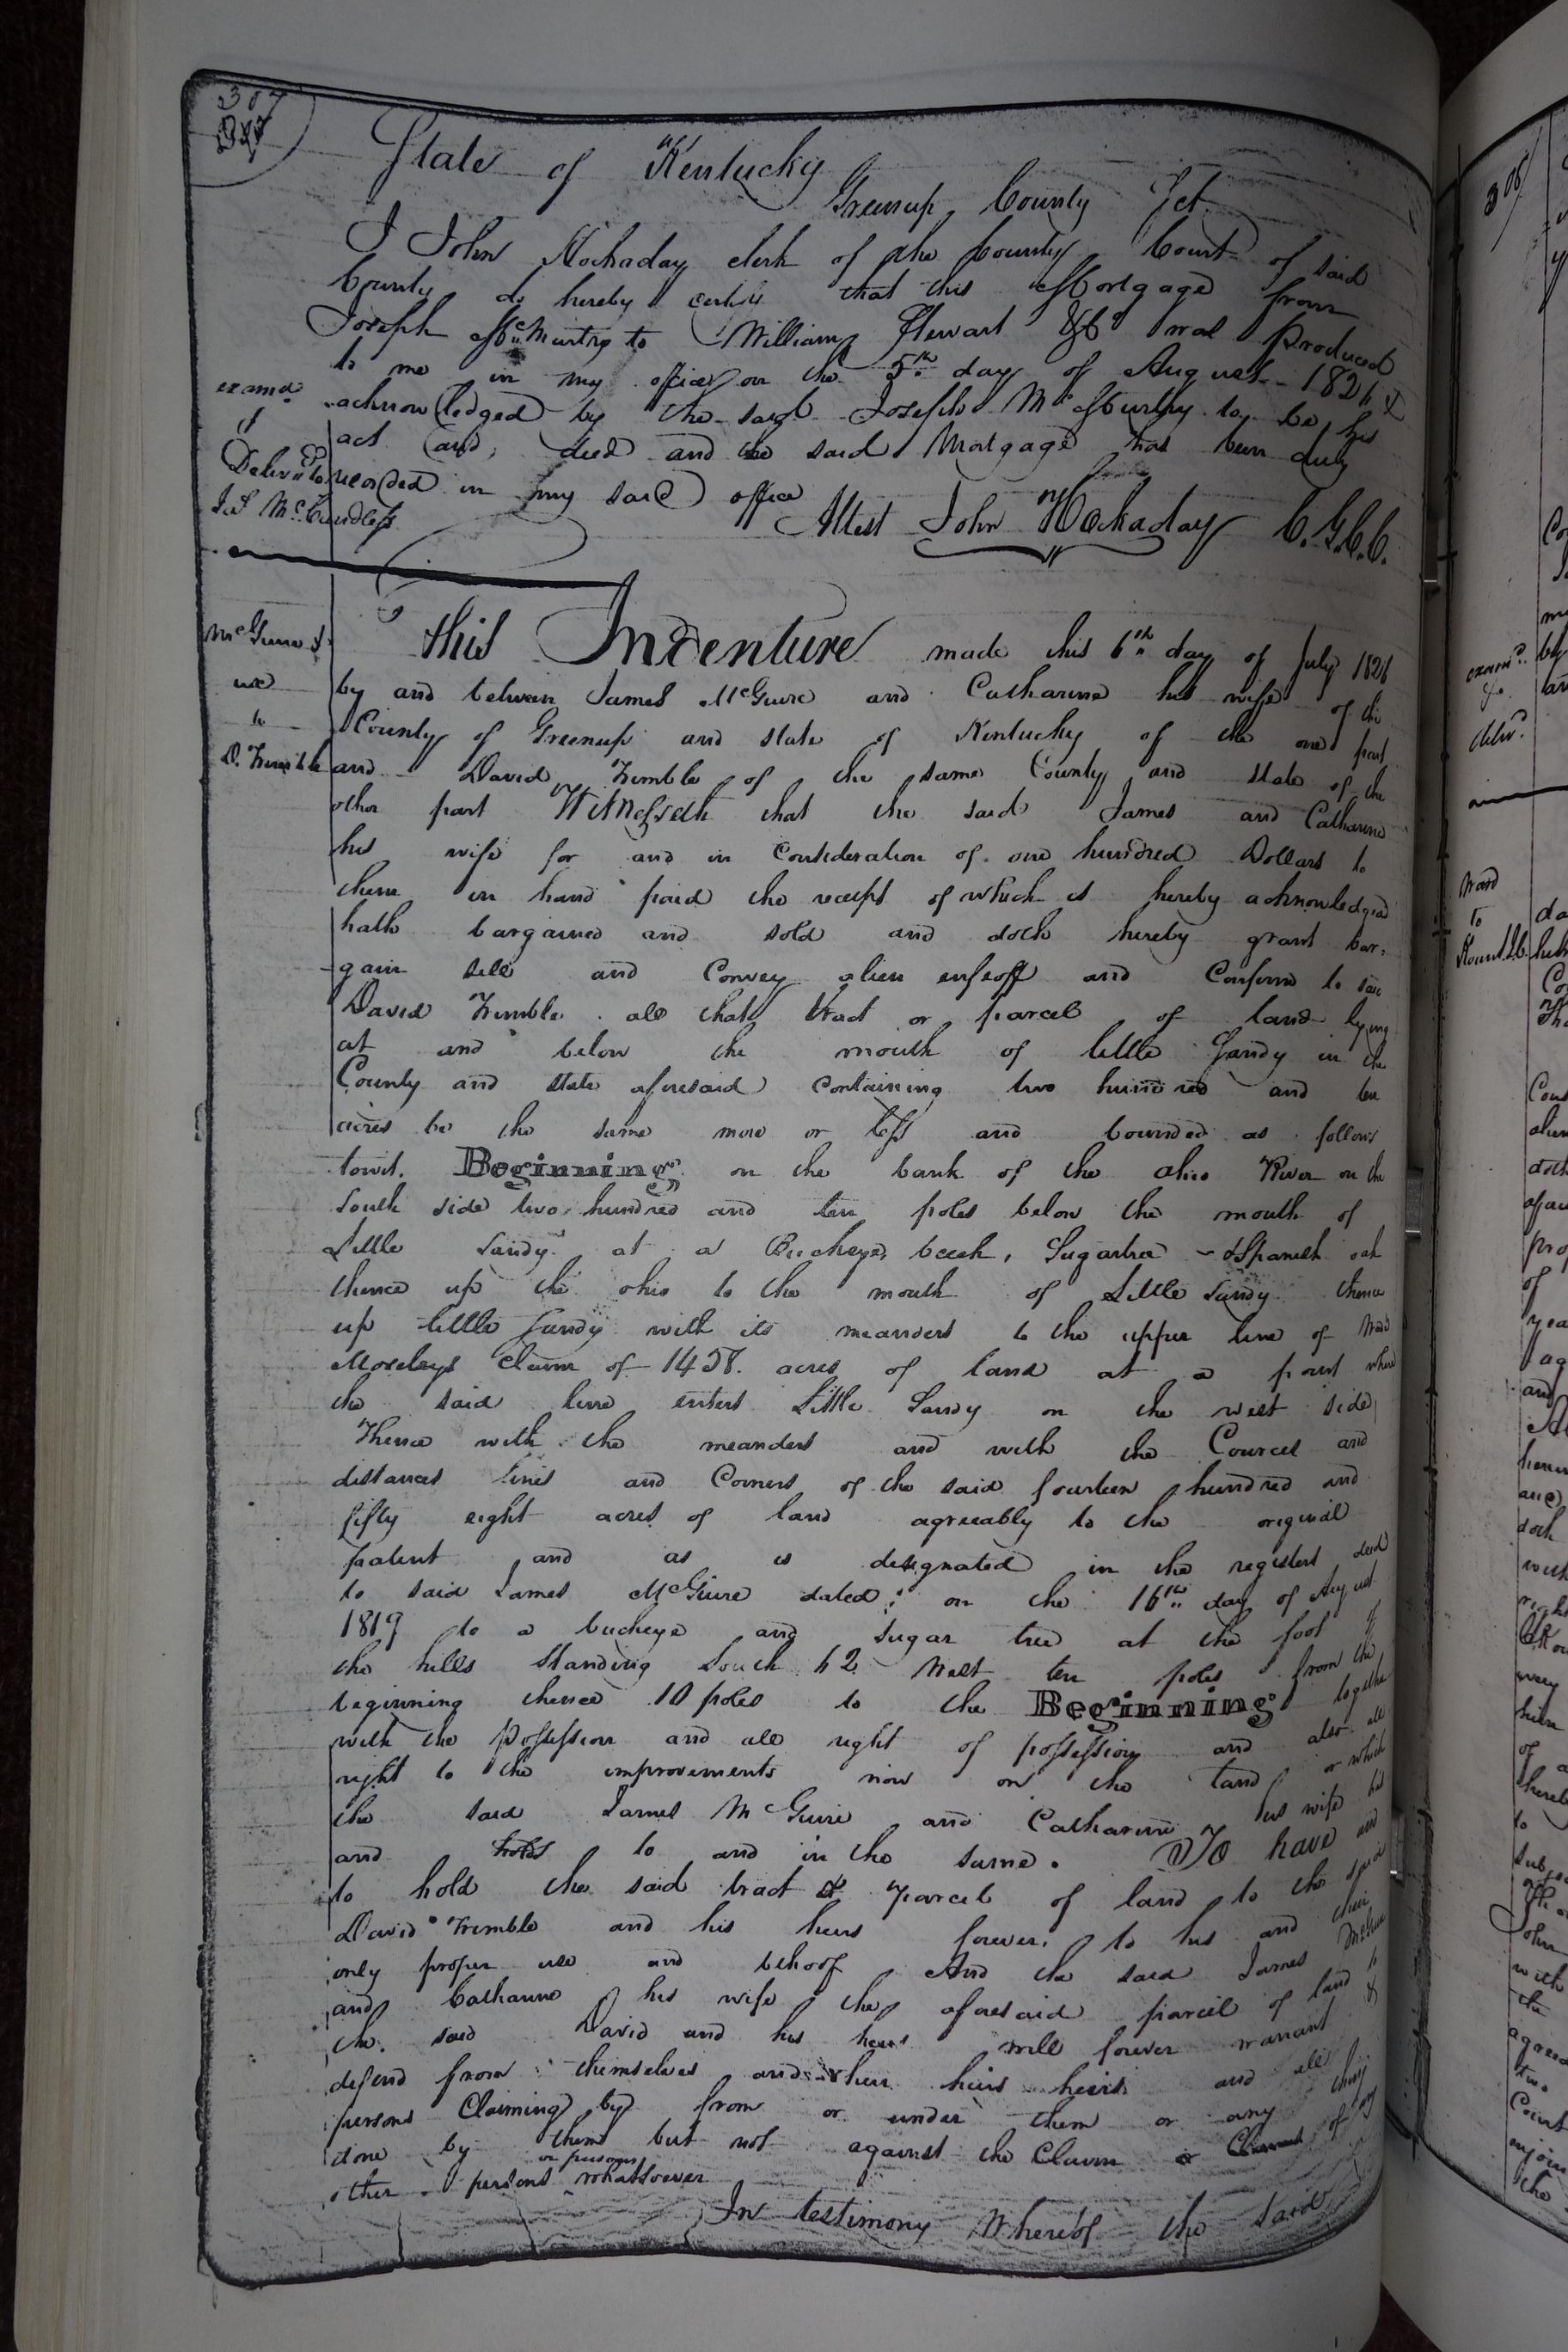 307
State of Kentucky
Greenup County Sct
I John Hockaday clerk of the County Court of said
County do hereby certify that this Mortgage from
Joseph McMurtry to William Stewart &Co was produced
to me in my office on the 5th day of August 1826 &
acknowledged by the said Joseph McMurtry to be his
act and deed and the said Mortgage has been duly
recorded in my said office
Attest John Hockaday C.G.C.C.
examd
&
Delivd to
McCandless
McGuire &
to
D. Trimble
This Indenture made this 6th day of July 1826
by and between James McGuire and Catharine his wife of the
County of Greenup and state of Kentucky of the one part
and David Trimble of the same County and state of the
other part Witnesseth that the said James and Catharine
his wife for and in Consideration of one hundred Dollars to
them in hand paid the receipt of which is hereby acknowledged
hath bargained and sold and doth hereby grant bar-
gain sell and Convey alien enfeoff and Confirm to said
David Trimble all that tract or parcel of land lying
at and below the mouth of little Sandy in the
County and state aforesaid containing two hundred and ten
acres be the same more or less and bounded as follows
towit. Beginning on the bank of the ohio River on the
south side two hundred and ten poles below the mouth of
Little Sandy at a Buckeye, beech, Sugartree & Spanish oak
thence up the ohio to the mouth of Little Sandy thence
up little Sandy with its meanders to the upper line of
Moseleys Claim of 1458 acres of land at a point where
the said line enters Little Sandy on the west side
Thence with the meanders and with the Cources and
distances lines and Corners of the said fourteen hundred and
fifty eight acres of land agreeably to the original
patent and as is designated in the registers deed
to said James McGuire dated on the 16th day of August
1819 to a buckeye and sugar tree at the foot of
the hills standing South 62 West ten poles from the
beginning thence 10 poles to the Beginning together
with the Possession and all right of possession and also all
right to the improvements now on the land or which
the said James McGuire and Catharine his wife had
and to and in the same. To have and
to hold the said tract & parcel of land to the said
David Trimble and his heirs forever, to his and their
only proper use and behoof And the said James McGuire
and Catharine his wife the aforesaid parcel of land to
the said David and his heirs will forever warrant &
defend from themselves and their heirs heirs and all
persons Claiming by from or under them or any thing
done by them but not against the Claim or Claims of any
other persons or persons whatsoever
In testimony Whereof the said